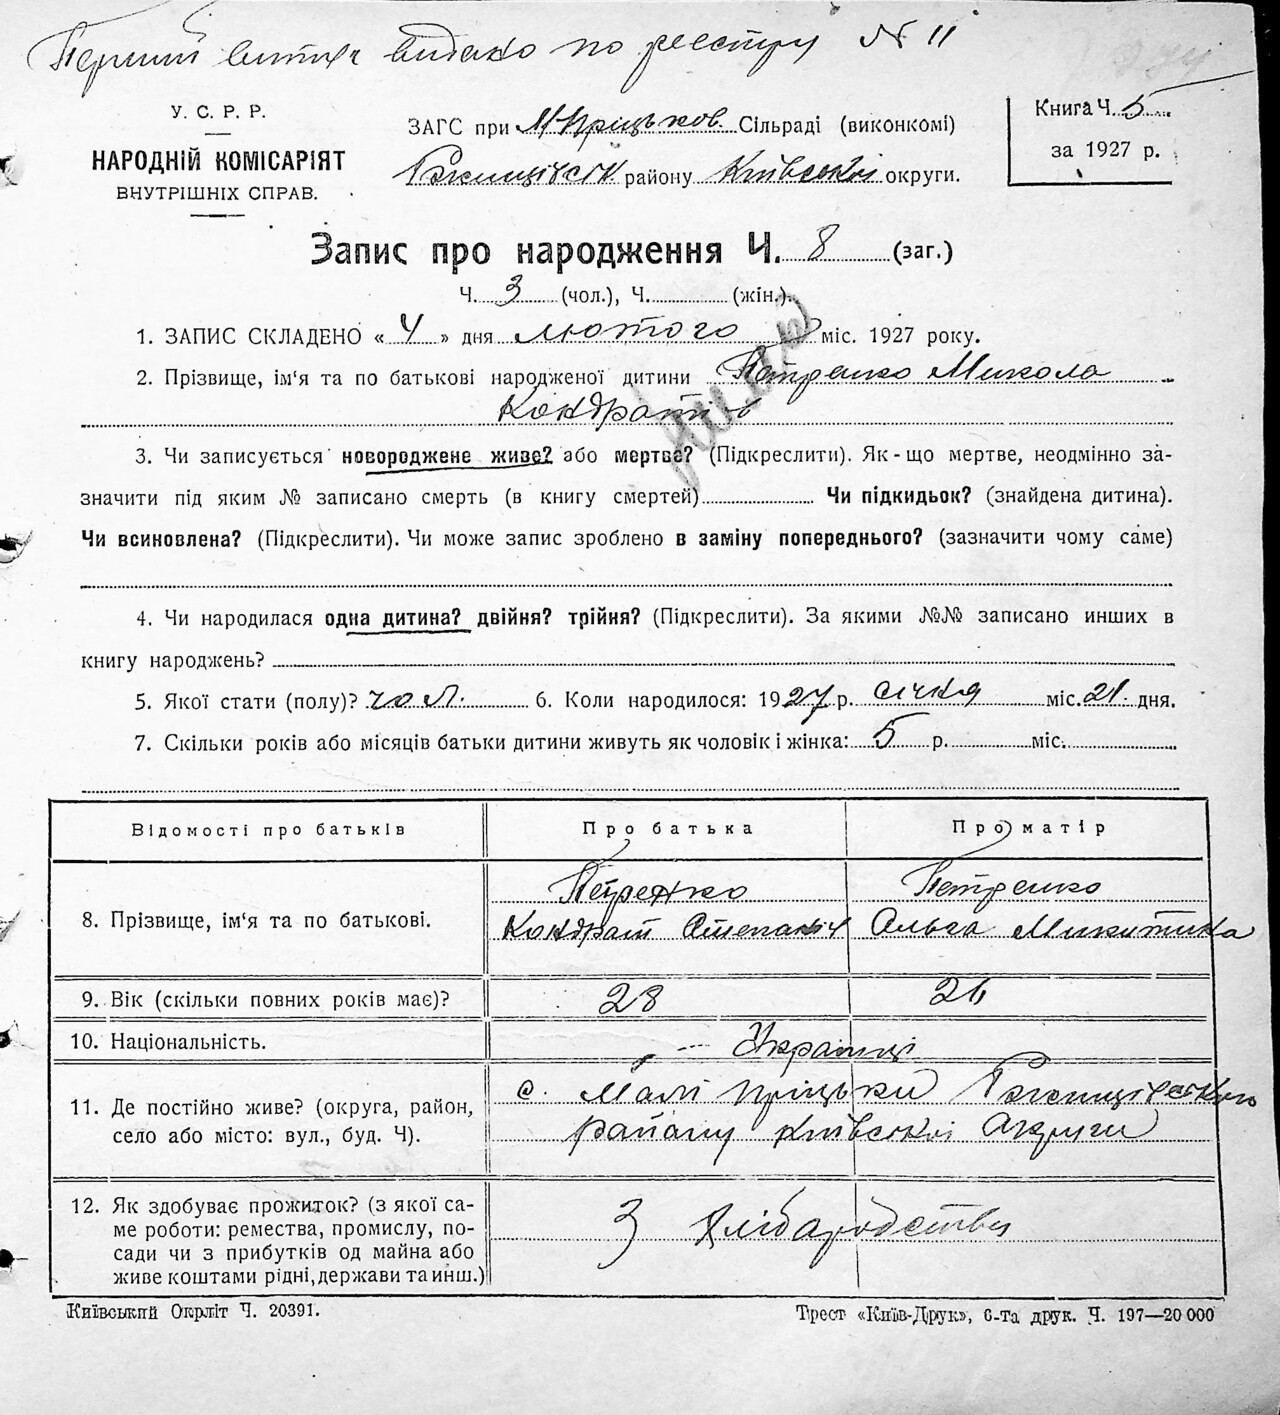 Перший витяг видано по реестру № 11
У. С. Р. Р.
НАРОДНІЙ КОМІСАРІЯТ
ВНУТРІШНІХ СПРАВ.
ЗАГС при М/Пріцьков. Сільраді (виконкомі)
Ржищівськ району Київської округи.
Книга Ч. 5
за 1927 р.
Запис про народження Ч. 8 (заг.)
Ч. 3 (чол.), Ч. (жін.).
1. ЗАПИС СКЛАДЕНО «4» дня лютого міс. 1927 року.
2. Прізвище, ім'я та по батькові народженої дитини Петренко Микола
Кондратів
3. Чи записується новороджене живе? або мертве? (Підкреслити). Як-що мертве, неодмінно за-
значити під яким № записано смерть (в книгу смертей) Чи підкидьок? (знайдена дитина).
Чи всиновлена? (Підкреслити). Чи може запис зроблено в заміну попереднього? (зазначити чому саме)
4. Чи народилася одна дитина? двійня? трійня? (Підкреслити). За якими №№ записано инших в
книгу народжень?
5. Якої стати (полу)? чол. 6. Коли народилося: 1927 р. січня міс. 21. дня.
7. Скільки років або місяців батьки дитини живуть як чоловік і жінка: 5 р. міс.
Відомості про батьків Про батька Про матір
8. Прізвище, ім'я та по батькові. Петренко Кондрат Степанів Петренко Ольга Микитина
9. Вік (скільки повних років має)? 28 26
10. Національність. Українці
11. Де постійно живе? (округа, район,
село або місто: вул., буд. Ч). с. Малі Пріцьки Ржищівського
району Київської округи
12. Як здобуває прожиток? (з якої са-
ме роботи: ремества, промислу, по-
сади чи з прибутків од майна або
живе коштами рідні, держави та инш.) З хліборобства
Київський Окрліт Ч. 20391.
Трест «Київ-Друк», 6-та друк. Ч. 197—20 000